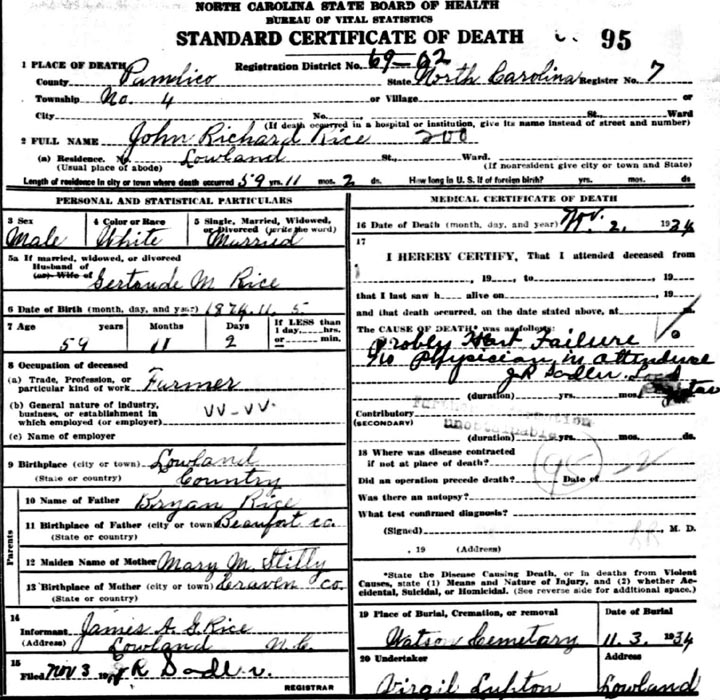 NORTH CAROLINA STATE BOARD OF HEALTH
BUREAU OF VITAL STATISTICS
STANDARD CERTIFICATE OF DEATH 95
1 PLACE OF DEATH Registration District No. 69-02
County Pamlico State North Carolina Register No. 7
Township No. 4 or Village or
City No. St., Ward
(If death occurred in a hospital or institution, give its name instead of street and number)
2 FULL NAME John Richard Rice 200
(a) Residence. Lowland St., Ward.
(Usual place of abode) (If nonresident give city or town and State)
Length of residence in city or town where death occurred 59 yrs. 11 mos. 2 ds. How long in U. S. if of foreign birth? yrs. mos. ds.
PERSONAL AND STATISTICAL PARTICULARS
3 Sex 4 Color or Race 5 Single, Married, Widowed,
or Divorced (write the word)
Male White Married
5a If married, widowed, or divorced
Husband of
(or) Wife of Gertrude M. Rice
6 Date of Birth (month, day, and year) 1874. 11. 5
7 Age years Months Days If LESS than
1 day, hrs.
or min.
59 11 2
8 Occupation of deceased
(a) Trade, Profession, or
particular kind of work Farmer
(b) General nature of industry,
business, or establishment in
which employed (or employer)
(c) Name of employer
9 Birthplace (city or town) Lowland
(State or country) Country
Parents
10 Name of Father Bryan Rice
11 Birthplace of Father (city or town) Beaufort co.
(State or country)
12 Maiden Name of Mother Mary M. Stilly
13 Birthplace of Mother (city or town) Craven co.
(State or country)
14
Informant James A. G. Rice
(Address) Lowland N. C.
15
Filed Nov 3 19
REGISTRAR
MEDICAL CERTIFICATE OF DEATH
16 Date of Death (month, day, and year) Nov. 2, 1934
17
I HEREBY CERTIFY, That I attended deceased from
, 19 , to , 19
that I last saw h alive on , 19
and that death occurred, on the date stated above, at
The CAUSE OF DEATH* was as follows:
Probly Hart Failure
No Physician in attendince
(duration) yrs. mos.
Contributory
(SECONDARY)
unobtainable
(duration) yrs. mos. ds.
18 Where was disease contracted
if not at place of death?
95
Did an operation precede death? Date of
Was there an autopsy?
What test confirmed diagnosis?
(Signed) M. D.
, 19 (Address)
*State the Disease Causing Death, or in deaths from Violent
Causes, state (1) Means and Nature of Injury, and (2) whether Ac-
cidental, Suicidal, or Homicidal. (See reverse side for additional space.)
19 Place of Burial, Cremation, or removal Date of Burial
Watson Cemetary 11. 3. 1934
20 Undertaker Address
Virgil Lupton Lowland